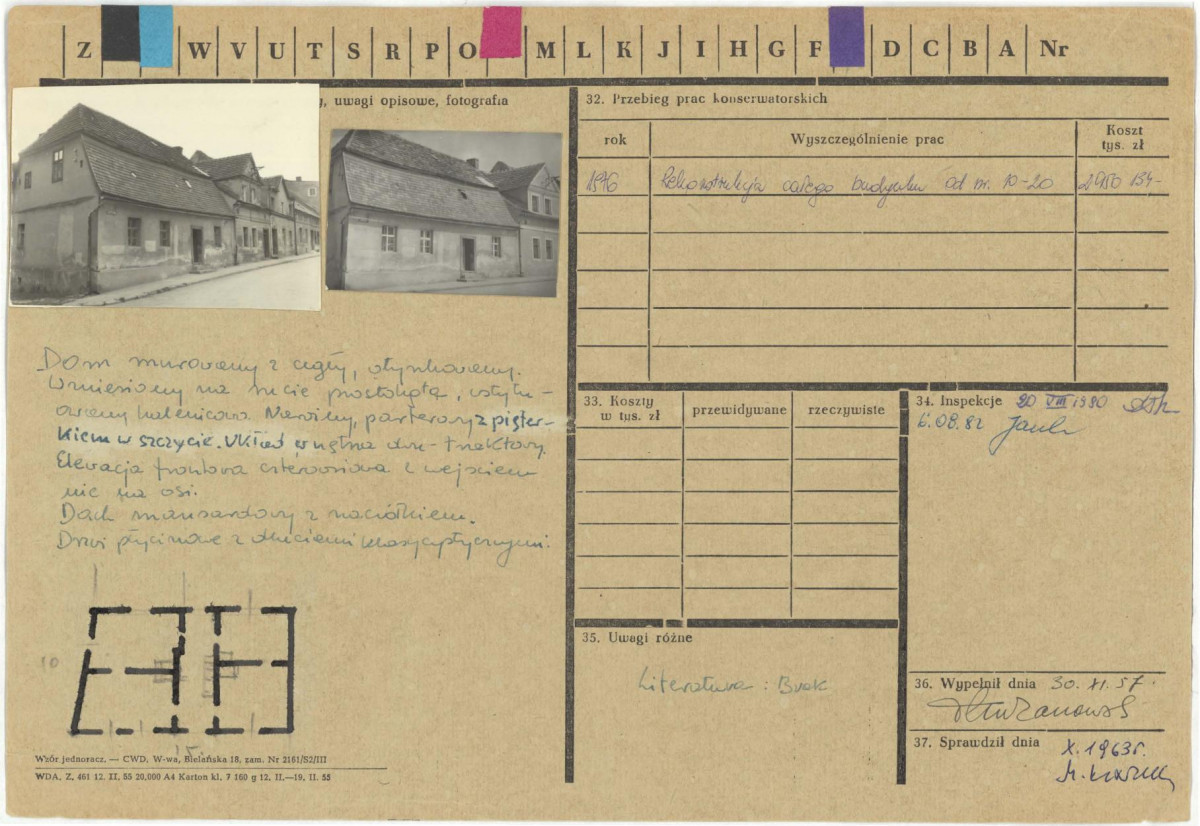 Z W V U T S R P O M L K J I H G F D C B A Nr
, uwagi opisowe, fotografia
Dom murowany z cegły, otynkowany.
Wzniesiony na rzucie prostokąta, usytu-
owany kalenicowo. Narożny, parterowy z pięter-
kiem w szczycie. Układ wnętrza dwu-traktowy.
Elewacja frontowa czteroosiowa z wejściem
nie na osi.
Dach mansardowy z naczółkiem.
Drzwi płycinowe z okuciami klasycystycznymi.
10
15
Wzór jednoraz. — CWD, W-wa, Bielańska 18, zam. Nr 2161/S2/III
WDA. Z. 461 12. II. 55 20,000 A4 Karton kl. 7 160 g 12. II.—19. II. 55
32. Przebieg prac konserwatorskich
rok Wyszczególnienie prac Koszt
tys. zł
1976 Rekonstrukcja całego budynku od nr. 10-20 2950 134-
33. Koszty
w tys. zł przewidywane rzeczywiste
34. Inspekcje 20 VIII 1980
6.08.82
35. Uwagi różne
Literatura: Brak
36. Wypełnił dnia 30. XI. 57.
37. Sprawdził dnia X. 1963r.